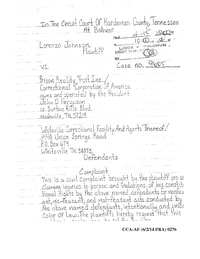 In The Circuit Court Of Hardeman County, Tennessee
At Bolivar
Lorenzo Johnson,
Plaintiff
vs. Case no. 9465
Prison Realty Trust Inc./
Correctional Corporation of America
owned and operated by the President
John D. Ferguson
10 Burton Hills Blvd.
Nashville, TN 37215
Whiteville Correctional Facility And Agents Thereof/
1440 Union Springs Road
P.O. Box 679
Whiteville TN 38075
Defendants
Complaint
This is a civil complaint brought by the plaintiff pro se
claiming injuries to person and violations of his constitu
tional rights by the above named defendants for negligen
act, mis-feasant, and mal-feasant acts conducted by
the above named defendants, intentionally and under
Color of Law. The plaintiff hereby request that this
CCA-AF (6/2/14 PRA) 0276